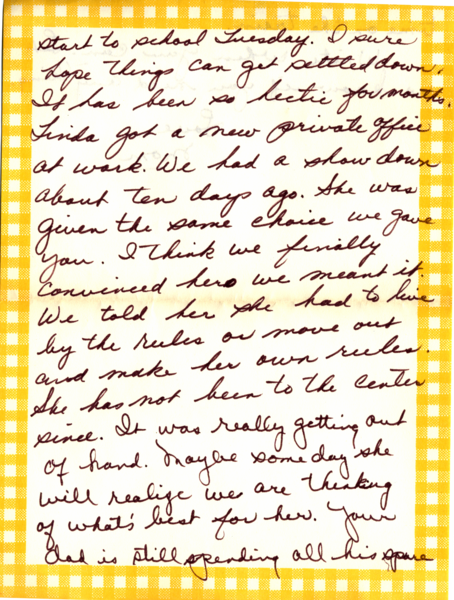 start to school Tuesday. I sure
hope things can get settled down.
It has been so hectic for months.
Linda got a new private office
at work. We had a show down
about ten days ago. She was
given the same choice we gave
you. I think we finally
convinced her we meant it.
We told her she had to live
by the rules or move out
and make her own rules.
She has not been to the center
since. It was really getting out
of hand. Maybe some day she
will realize we are thinking
of what's best for her. Your
dad is still spending all his spare